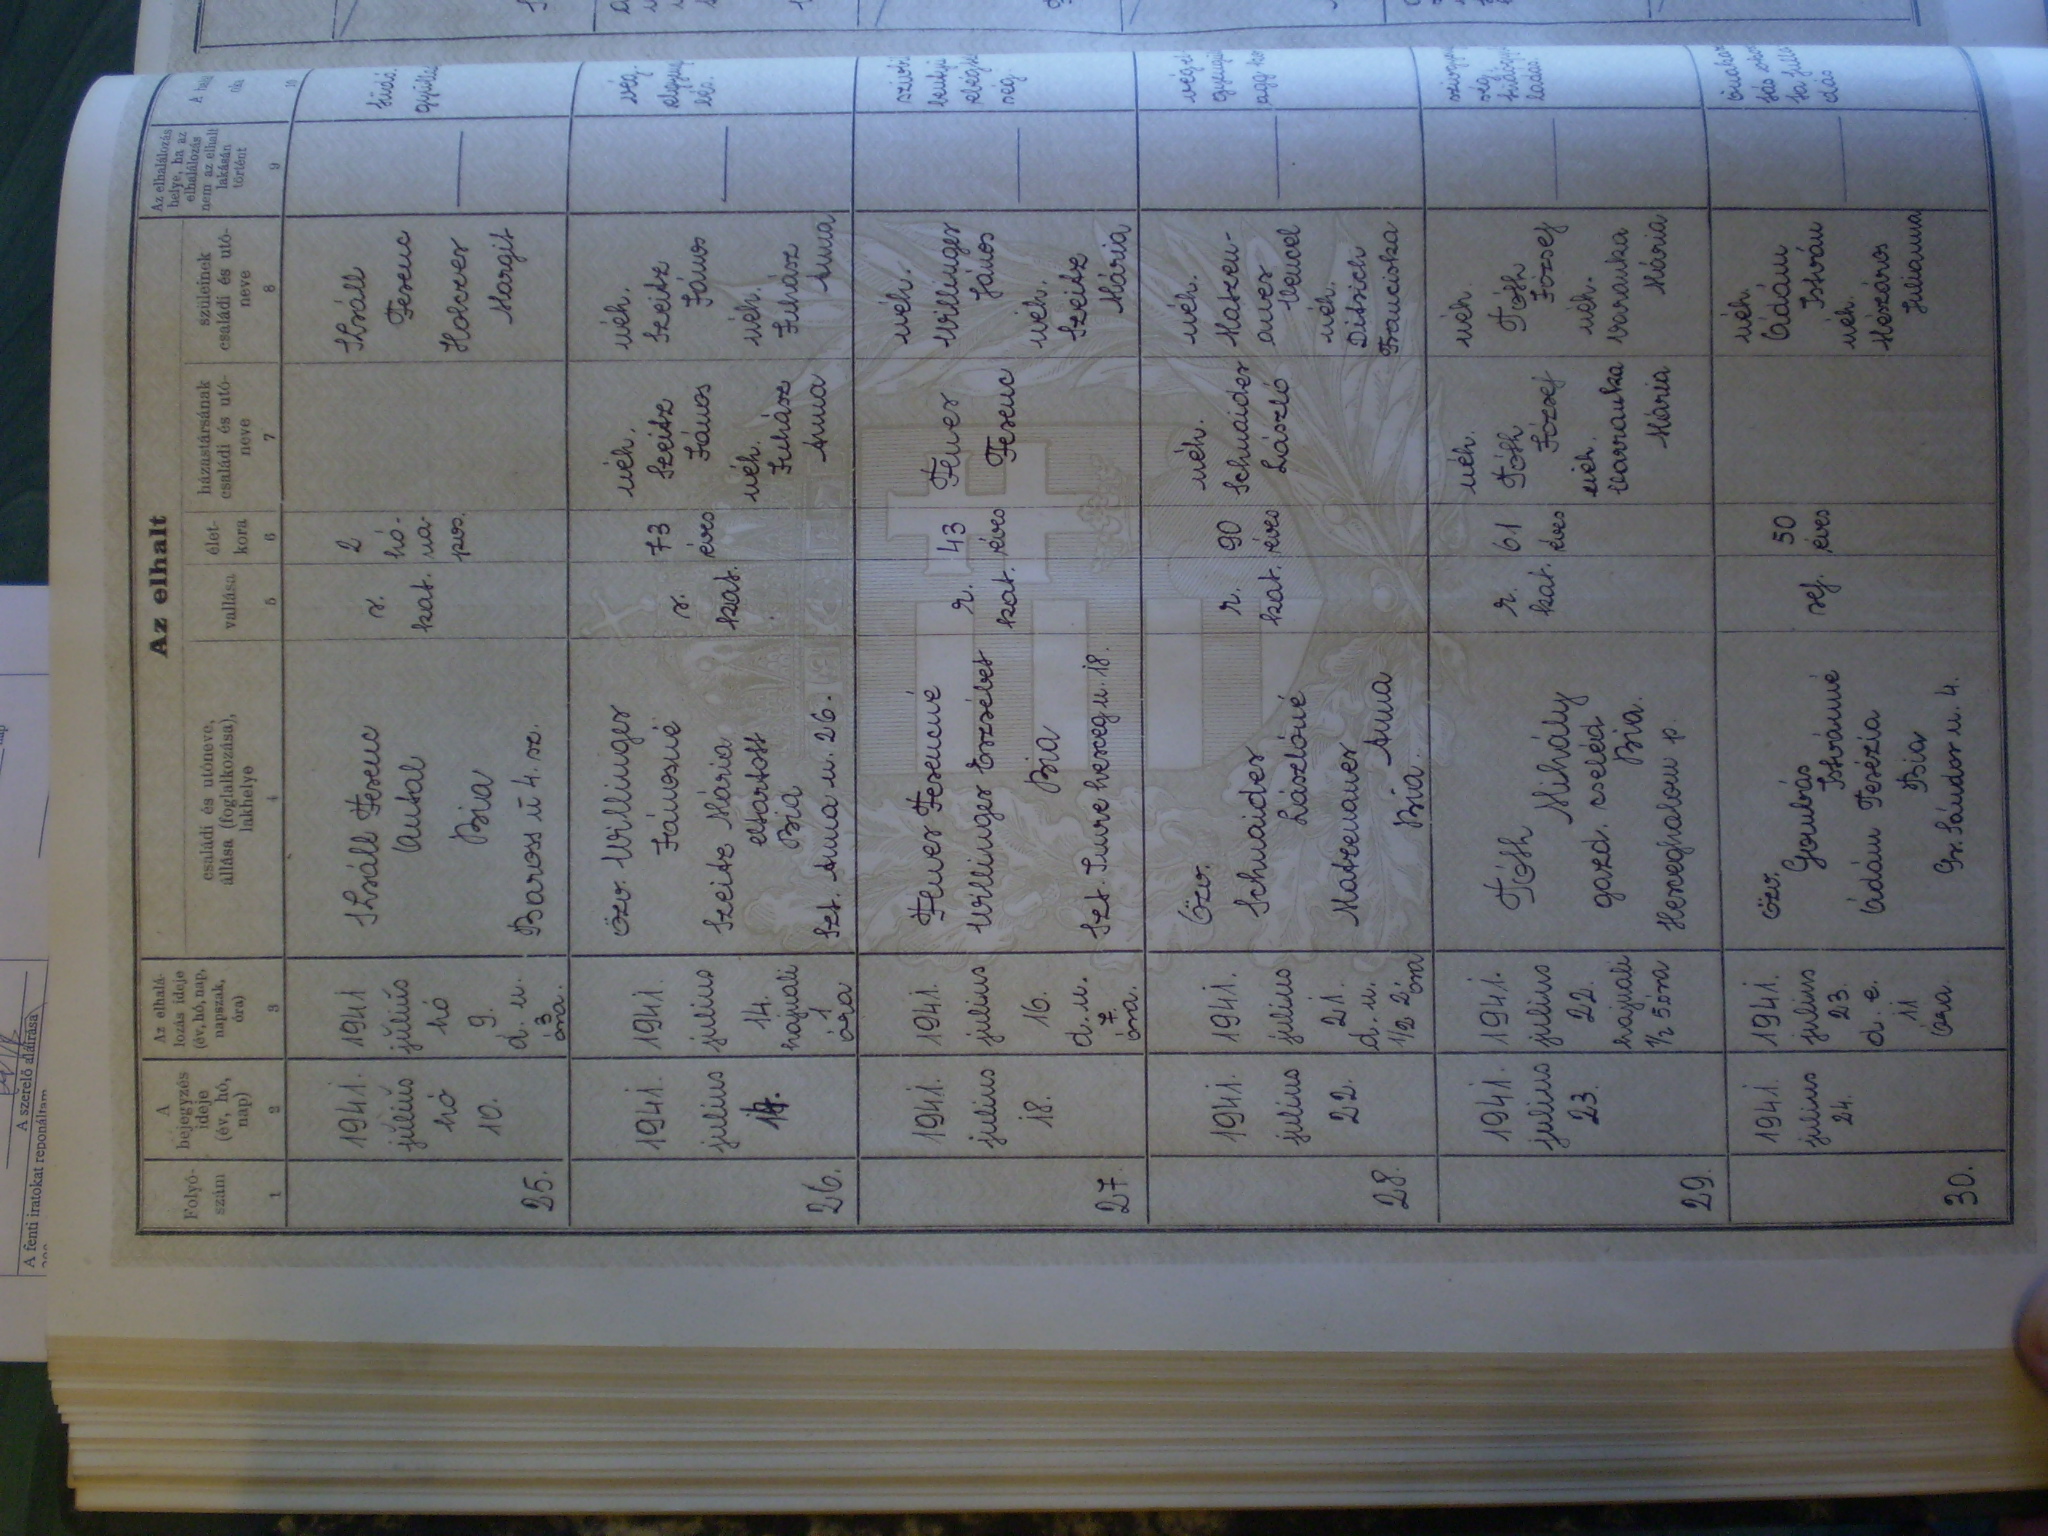 Az elhalt
Folyó-
szám
A
bejegyzés
ideje
(év, hó,
nap)
Az elhalá-
lozás ideje
(év, hó, nap,
napszak,
óra)
családi és utóneve,
állása (foglalkozása),
lakhelye
vallása
élet-
kora
házastársának
családi és utó-
neve
szüleinek
családi és utó-
neve
Az elhalálozás
helye, ha az
elhalálozás
nem az elhalt
lakásán
történt
1
2
3
4
5
6
7
8
9
10
25.
1941.
július
hó
10.
1941
július
hó
9.
d. u.
3
óra.
Thráll Ferenc
Antal
Bia
Baross u 4. sz.
r.
kat.
2
hó-
na-
pos.
Thráll
Ferenc
Holczer
Margit
26.
1941.
július
14.
1941.
július
14.
hajnali
1
óra
özv. Willinger
Jánosné
Szeitz Mária
eltartott
Bia
Szt. Anna u. 26.
r.
kat.
73
éves
néh.
Szeitz
János
néh.
Juhász
Anna
néh.
Szeitz
János
néh.
Juhász
Anna
27.
1941.
julius
18.
1941.
julius
16.
d. u.
7.
óra.
Feuer Ferencné
Willinger Erzsébet
Bia
Szt. Imre herceg u. 18.
r.
kat.
43
éves
Feuer
Ferenc
néh.
Willinger
János
néh.
Szeitz
Mária
28.
1941.
július
22.
1941.
július
21.
d. u.
1/2 2 óra
Özv.
Schnaider
Lászlóné
Matzenauer
Anna
Bia.
r.
kat.
90
éves
néh.
Schnaider
László
néh.
Matzen-
auer
Vencel
néh.
Ditrich
Franciska
29.
1941.
július
23.
1941.
július
22.
hajnali
1/2 5 óra
Tóth
Mihály
gazd. cseléd
Bia.
Herceghalom p.
r.
kat.
61
éves
néh.
Tóth
József
néh.
Varanka
Mária
néh.
Tóth
József
néh.
Varanka
Mária
30.
1941.
július
24.
1941.
július
23.
d. e.
11
óra.
özv.
Gombás
Istvánné
Ádám Terézia
Bia
Gr. Sándor u. 4.
ref.
50
éves
néh.
Ádám
István
néh.
Mészáros
Julianna
A szerelő aláírása
A fenti iratokat reponáltam
nap